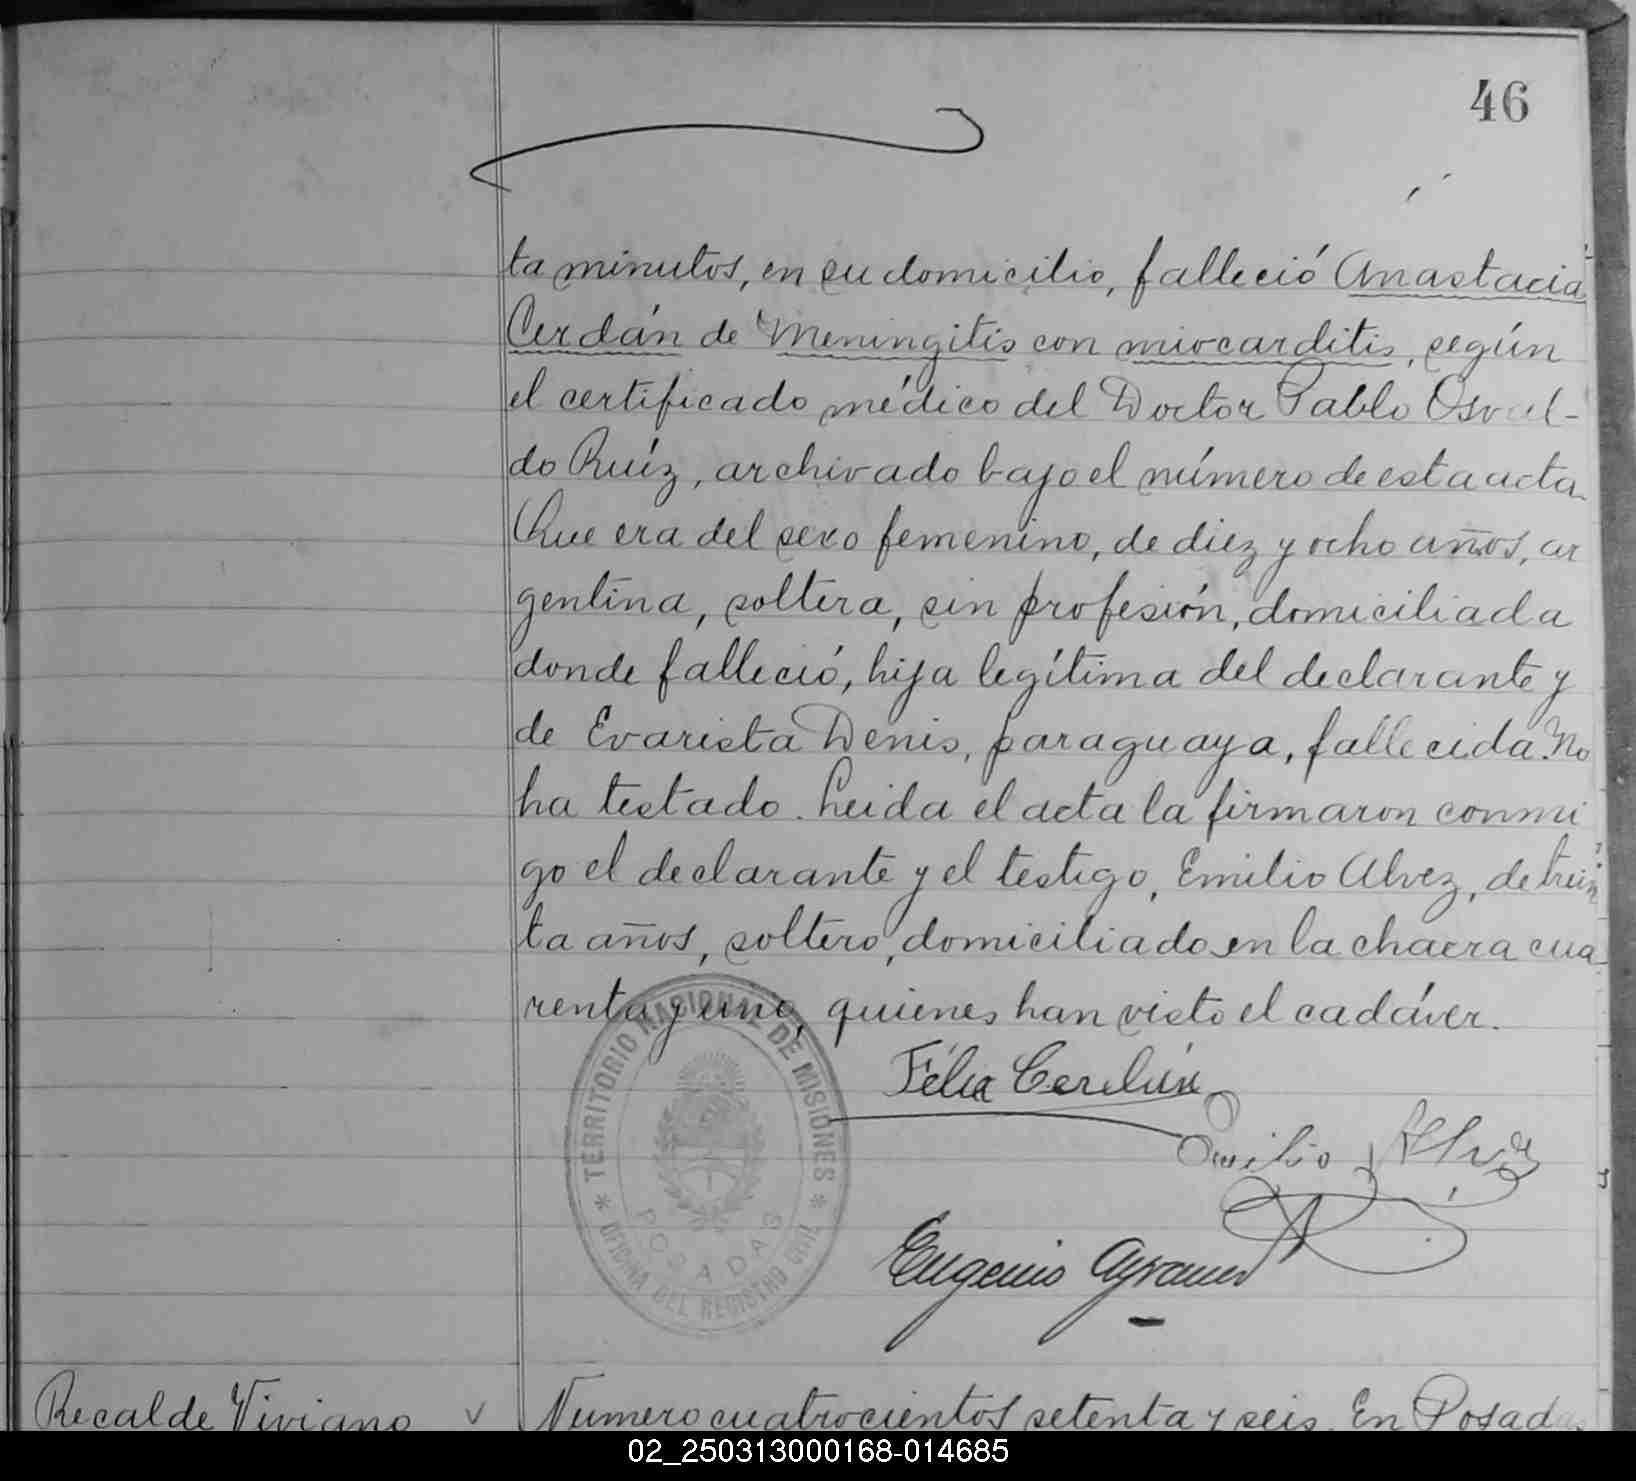 46
ta minutos, en su domicilio, falleció Anastacia
Cerdán de Meningitis con miocarditis, según
el certificado médico del Doctor Pablo Osval-
do Ruíz, archivado bajo el número de esta acta.
Que era del sexo femenino, de diez y ocho años, ar
gentina, soltera, sin profesión, domiciliada
donde falleció, hija legítima del declarante y
de Evarista Denis, paraguaya, fallecida. No
ha testado. Leida el acta la firmaron conmi
go el declarante y el testigo, Emilio Alvez, de trein
ta años, soltero, domiciliado en la chacra cua
renta y uno, quienes han visto el cadáver.
TERRITORIO NACIONAL DE MISIONES
POSADAS
* OFICINA DEL REGISTRO CIVIL *
Félix Cerdán
Emilio Alvez
Eugenio
Recalde Viviano
Numero cuatrocientos setenta y seis. En Posadas
02_250313000168-014685